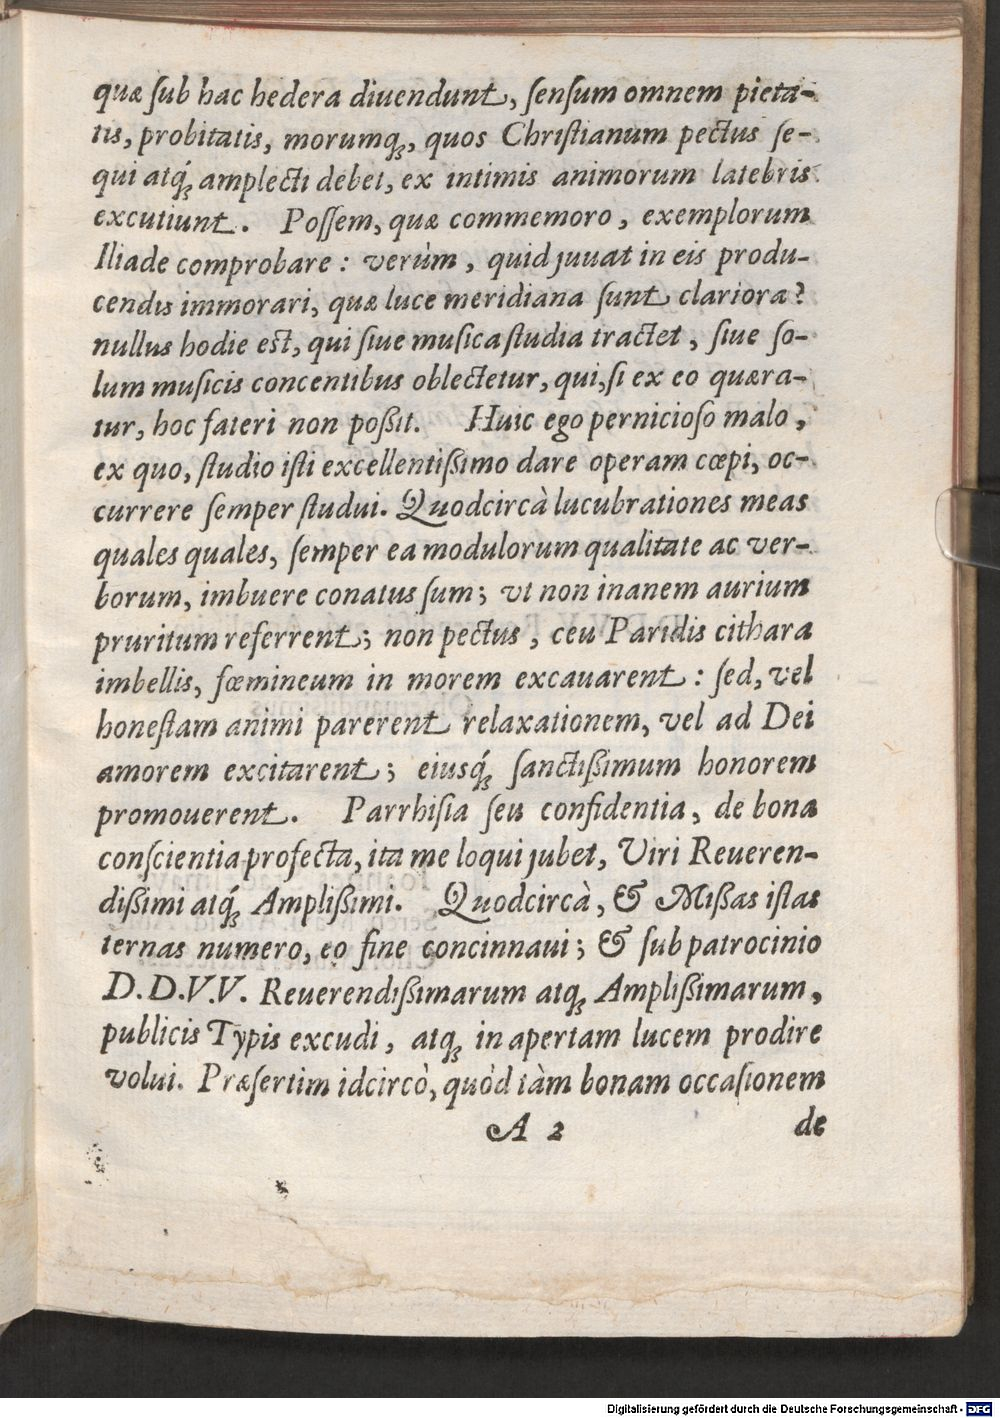 quæ ſub hac hedera diuendunt, ſenſum omnem pieta-
tis, probitatis, morumq́;, quos Chriſtianum pectus ſe-
qui atq́; amplecti debet, ex intimis animorum latebris
excutiunt. Poſſem, quæ commemoro, exemplorum
Iliade comprobare: verùm, quid juuat in eis produ-
cendis immorari, quæ luce meridiana ſunt clariora?
nullus hodie est, qui ſiue muſica ſtudia tractet, ſiue ſo-
lum muſicis concentibus oblectetur, qui, ſi ex eo quæra-
tur, hoc fateri non poßit. Huic ego pernicioſo malo,
ex quo, ſtudio iſti excellentißimo dare operam cœpi, oc-
currere ſemper ſtudui. Quodcircà lucubrationes meas
quales quales, ſemper ea modulorum qualitate ac ver-
borum, imbuere conatus ſum; vt non inanem aurium
pruritum referrent; non pectus, ceu Paridis cithara
imbellis, fœmineum in morem excauarent: ſed, vel
honeſtam animi parerent relaxationem, vel ad Dei
amorem excitarent; eiusq́; ſanctißimum honorem
promouerent. Parrhiſia ſeu confidentia, de bona
conſcientia profecta, ita me loqui jubet, Viri Reueren-
dißimi atq́; Amplißimi. Quodcircà, & Mißas iſtas
ternas numero, eo fine concinnaui; & ſub patrocinio
D.D.V.V. Reuerendißimarum atq; Amplißimarum,
publicis Typis excudi, atq; in apertam lucem prodire
volui. Præſertim idcircò, quòd tàm bonam occaſionem
A 2 de
Digitalisierung gefördert durch die Deutsche Forschungsgemeinschaft - DFG